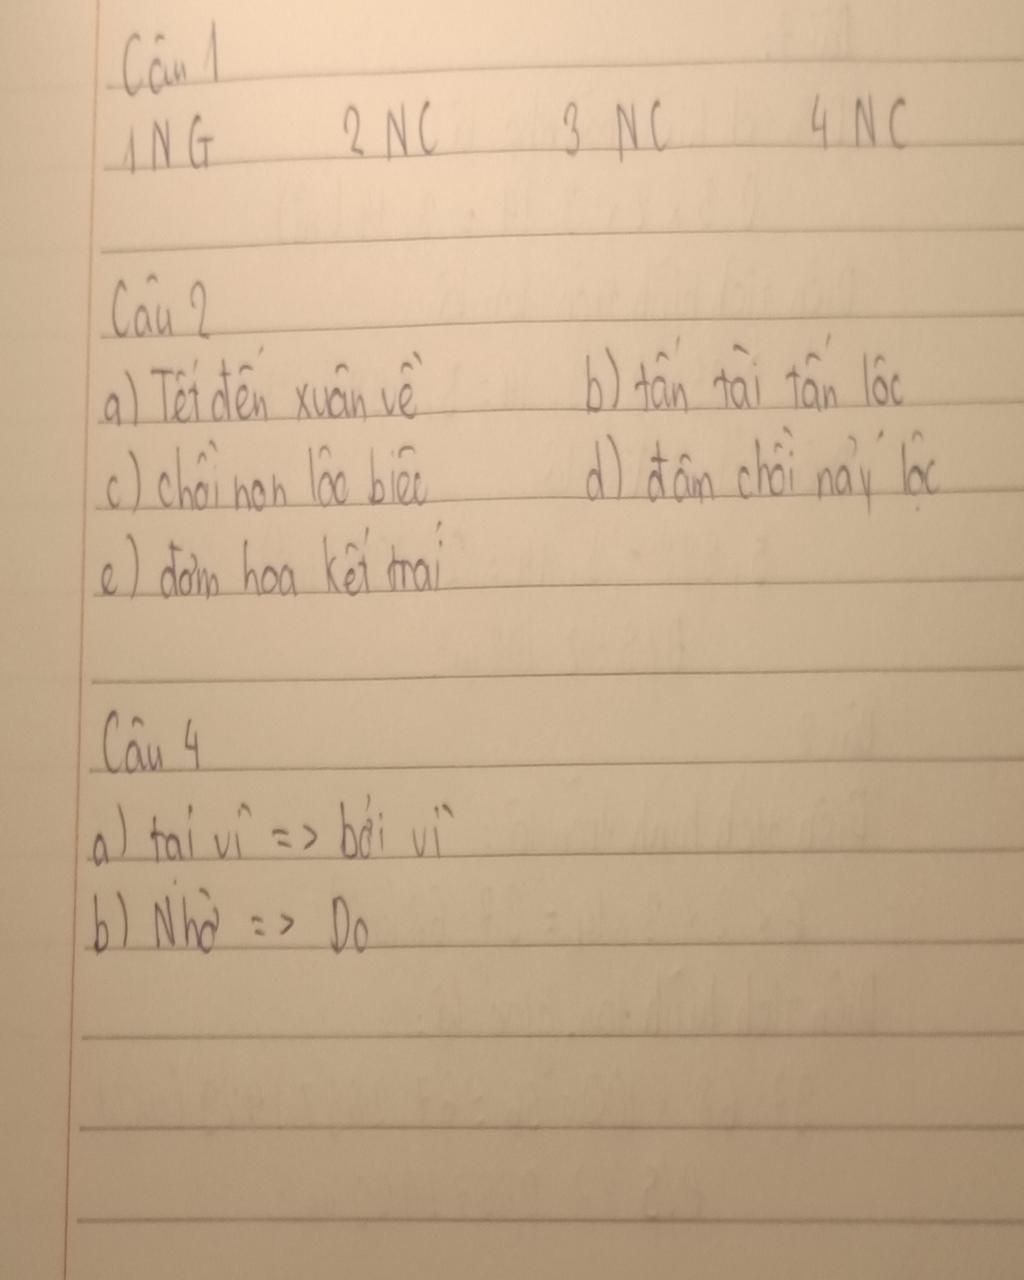 Câu 1
1 NG 2 NC 3 NC 4 NC
Câu 2
a) Tết đến xuân về b) tấn tài tấn lôc
c) chồi non lôc biêc d) đâm chồi nảy lộc
e) đơm hoa kết trái
Câu 4
a) tai vì => bởi vì
b) Nhờ => Do